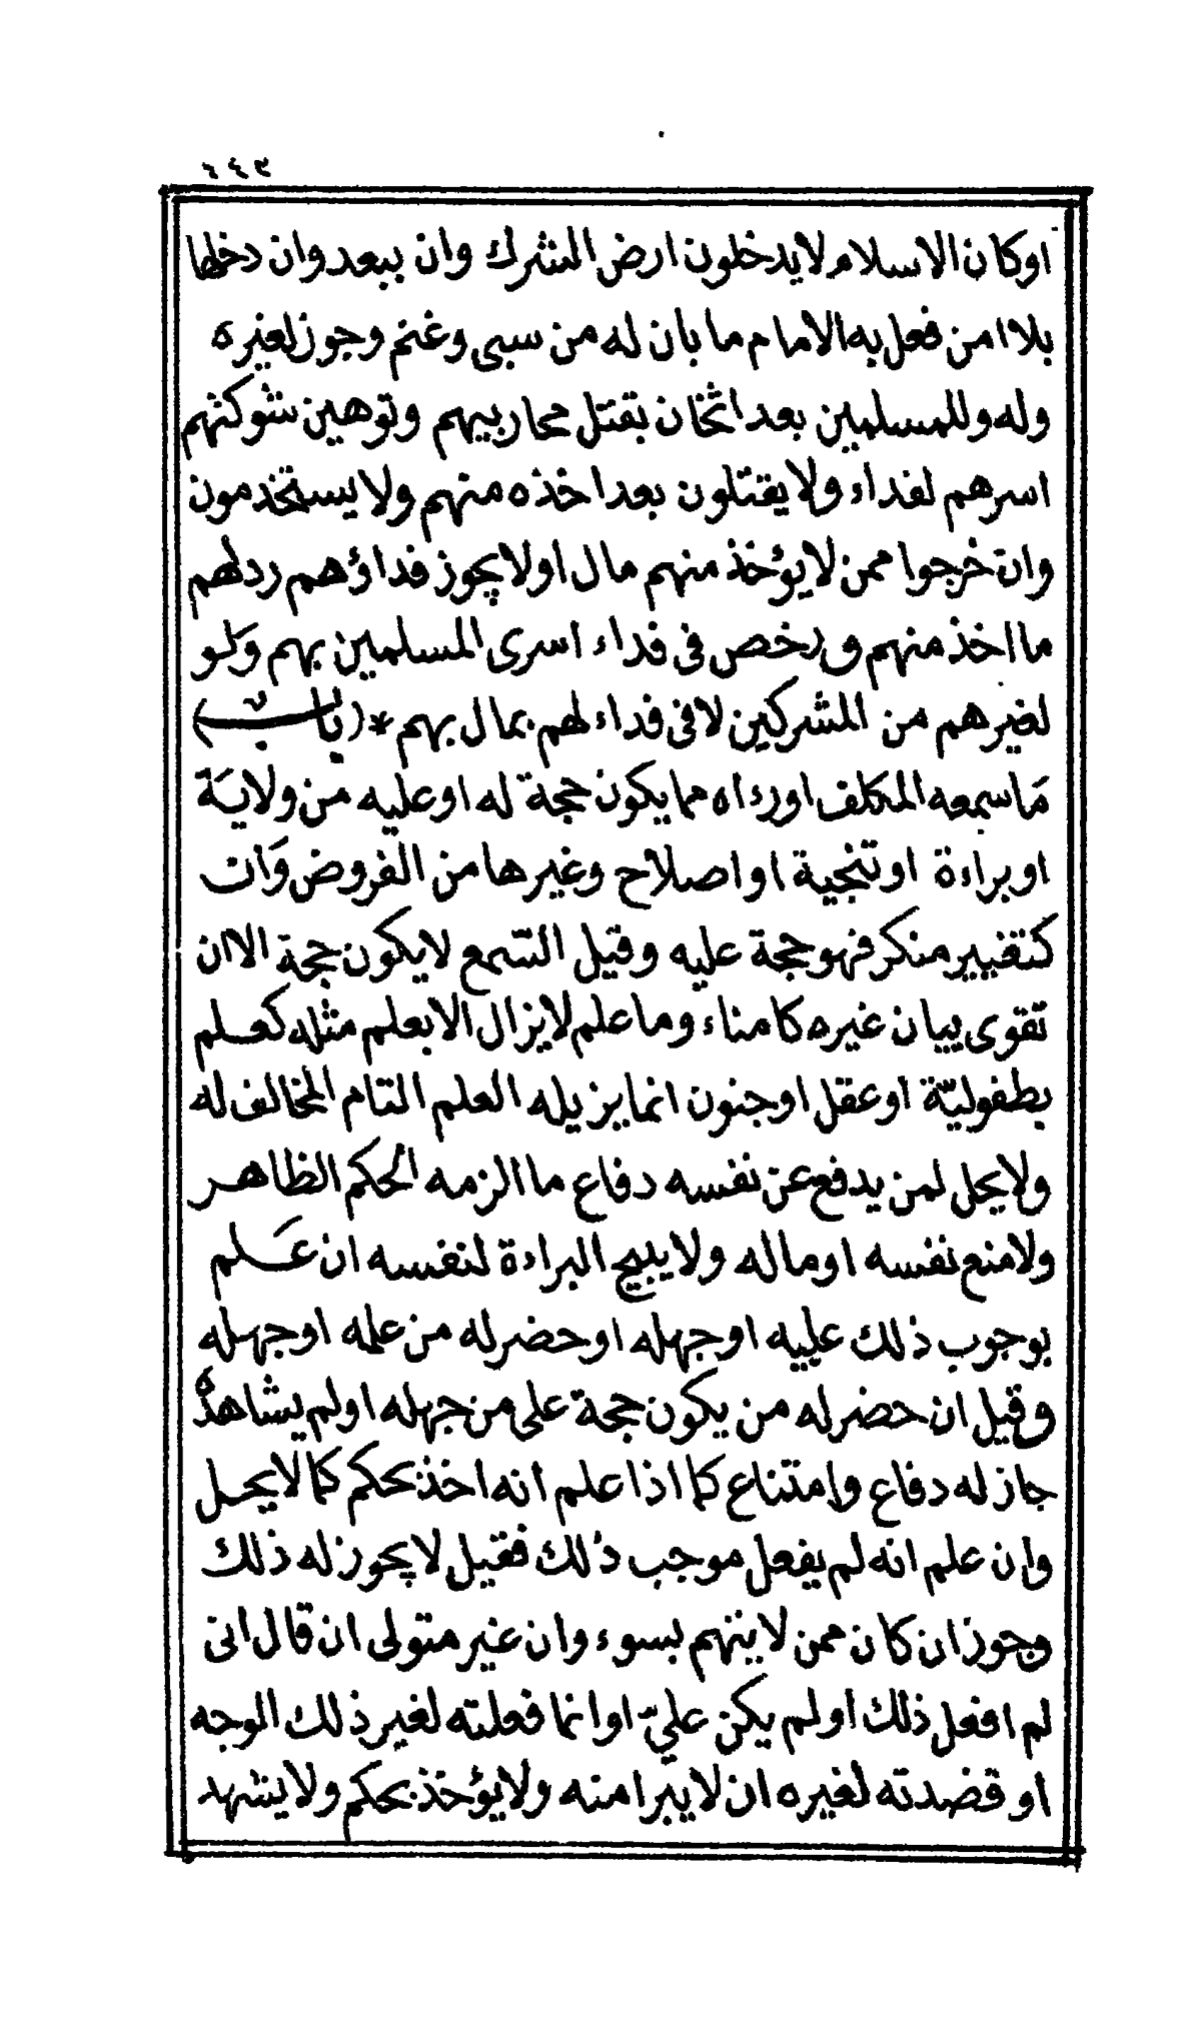 ٦٤٣
اوكان الاسلام لايدخلون ارض الشرك وان ببعد وان دخلها
بلا امن فعل به الامام ما بان له من سبى وغنم وجوز لغيره
وله وللمسلمين بعد اثخان بقتل محاربيهم وتوهين شوكتهم
اسرهم لفداء ولا يقتلون بعد اخذه منهم ولا يستخدمون
وان خرجوا ممن لا يؤخذ منهم مال اولا يجوز فداؤهم رد لهم
ما اخذ منهم ورخص فى فداء اسرى المسلمين بهم ولو
لغيرهم من المشركين لا فى فداء لهم بمال بهم * (باب)
مَا سمعه المكلف او رءاه مما يكون حجة له او عليه من ولايَة
او براءة او تنجية او اصلاح وغيرها من الفروض وَان
كتغيير منكر فهو حجة عليه وقيل السّمع لا يكون حجة الا ان
تقوى ببيان غيره كامناء وما علم لا يزال الا بعلم مثله كعلم
بطفوليّة او عقل او جنون انما يزيله العلم التام المخالف له
ولا يحل لمن يدفع عن نفسه دفاع ما الزمه الحكم الظاهر
ولا منع نفسه او ماله ولا يبيح البراءة لنفسه ان عَلم
بوجوب ذلك عليه او جهله او حضر له من علمه او جهله
وقيل ان حضر له من يكون حجة على من جهله او لم يشاهده
جاز له دفاع وامتناع كما اذا علم انه اخذ بحكم كما لا يحل
وان علم انه لم يفعل موجب ذلك فقيل لا يجوز له ذلك
وجوز ان كان ممن لا يتهم بسوء وان غير متولى ان قال انى
لم افعل ذلك او لم يكن عليّ او انما فعلته لغير ذلك الوجه
او قصدته لغيره ان لا يبرا منه ولا يؤخذ بحكم ولا يشهد